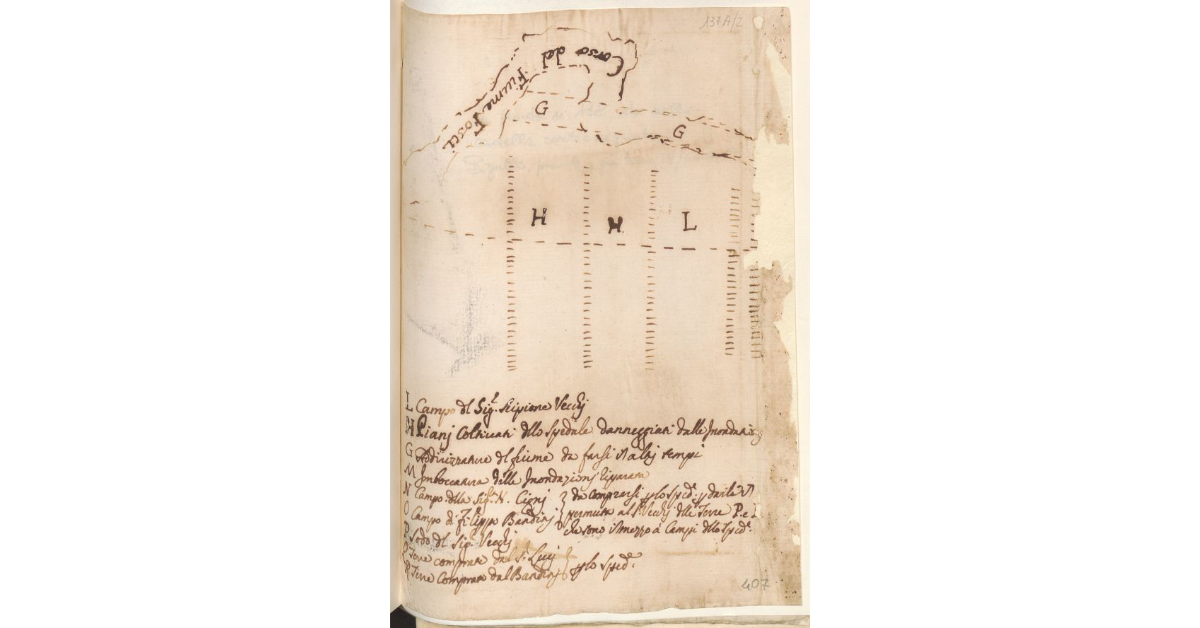 137A/2
Corso del Fiume Fosci
G
G
H
H
L
L Campo dl Sig.r Scipione Vecchj
H Pianj Coltivati dllo Spedale danneggiati dalle Inondazionj
G Addirizzature dl fiume da farsi
M Imboccatura delle Inondazionj riparata
N Campo dlla Sig.ra N. Cignj da comprarsi
O Campo d' Filippo Bandinj permuta al S. Vecchj delle Terre P. e
P Sodo dl Sig.r Vecchj che sono Campi dllo Sped.e
Q Terre comprate dal S. Lucij
R Terre Comprate dal Bandinj plo Sped.e
407